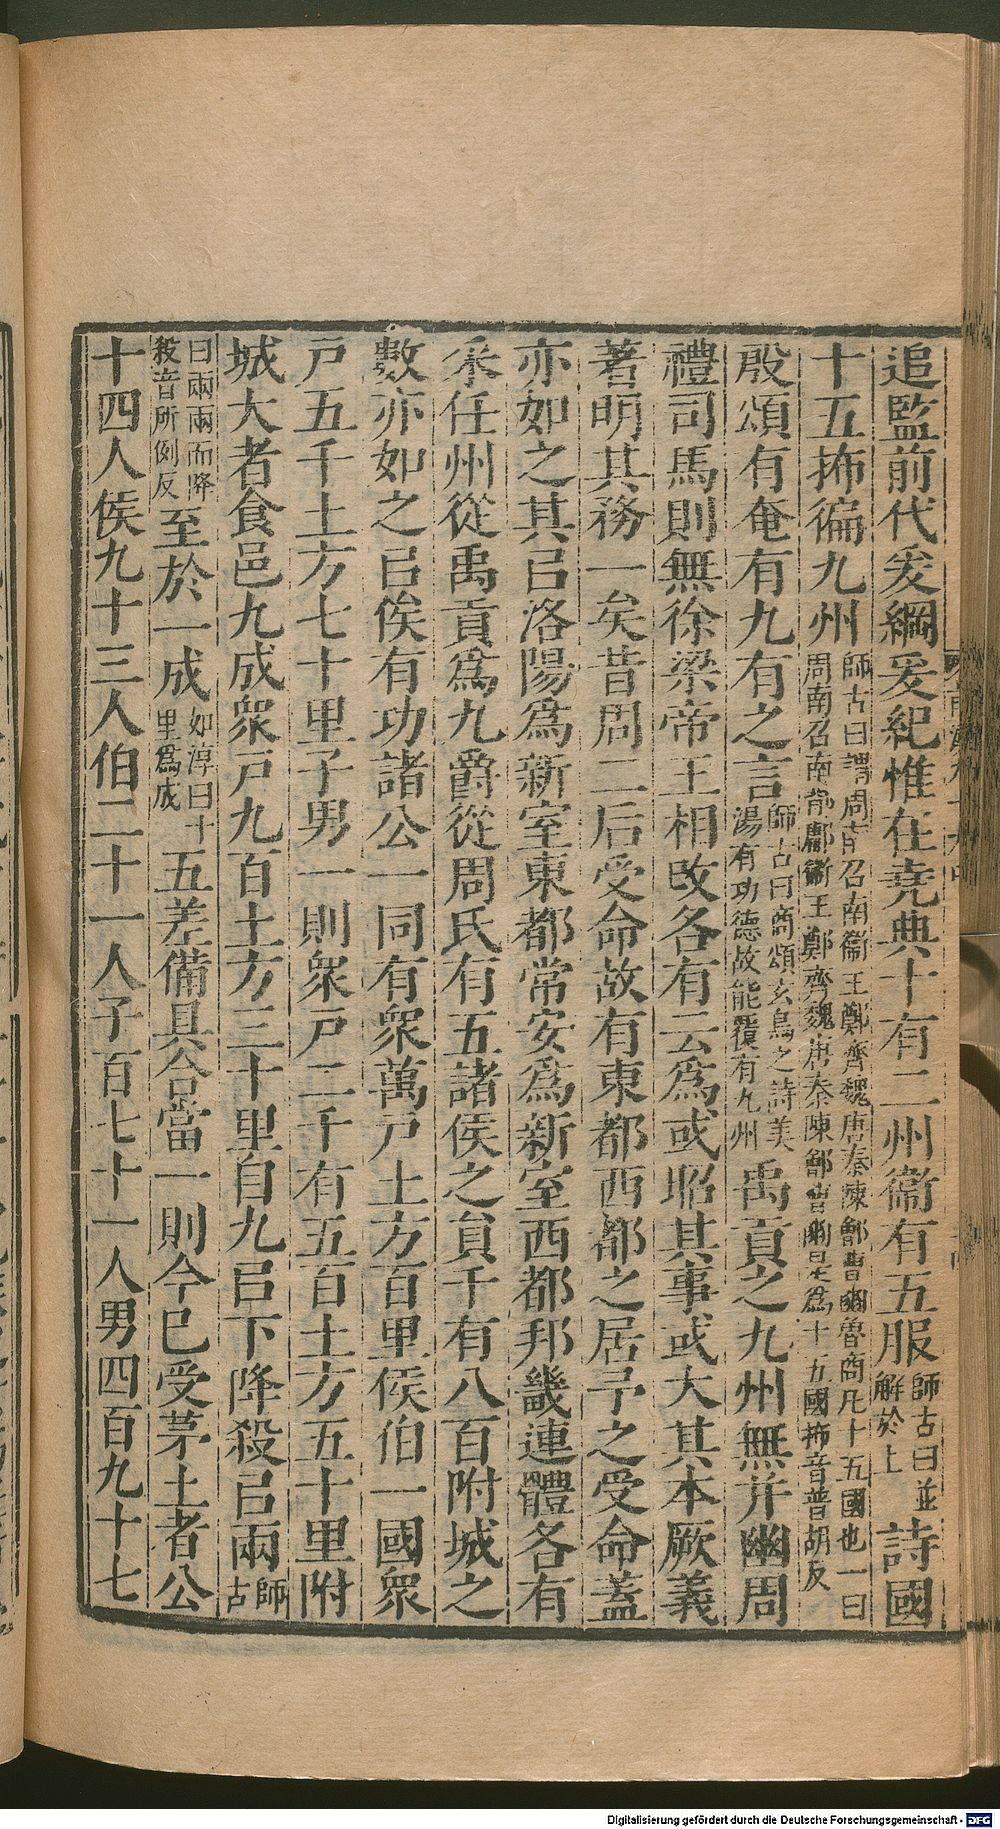 追監前代爰綱爰紀惟在堯典十有二州衞有五服師古曰並解於上詩國
十五抪徧九州師古曰謂周南召南衞王鄭齊魏唐秦陳鄶曹豳魯商凡十五國也一曰周南召南邶鄘衞王鄭齊魏唐秦陳鄶曹豳是爲十五國抪音普胡反
殷頌有奄有九有之言師古曰商頌玄鳥之詩美湯有功德故能覆有九州禹貢之九州無并幽周
禮司馬則無徐梁帝王相改各有云爲或昭其事或大其本厥義
著明其務一矣昔周二后受命故有東都西都之居予之受命蓋
亦如之其㠯洛陽爲新室東都常安爲新室西都邦畿連體各有
釆任州從禹貢爲九爵從周氏有五諸侯之員千有八百附城之
數亦如之㠯俟有功諸公一同有衆萬戶土方百里侯伯一國衆
戶五千土方七十里子男一則衆戶二千有五百土方五十里附
城大者食邑九成衆戶九百土方三十里自九㠯下降殺㠯兩師古
曰兩兩而降殺音所例反至於一成如淳曰十里爲成五差備具合當一則今已受茅土者公
十四人侯九十三人伯二十一人子百七十一人男四百九十七
Digitalisierung gefördert durch die Deutsche Forschungsgemeinschaft - DFG